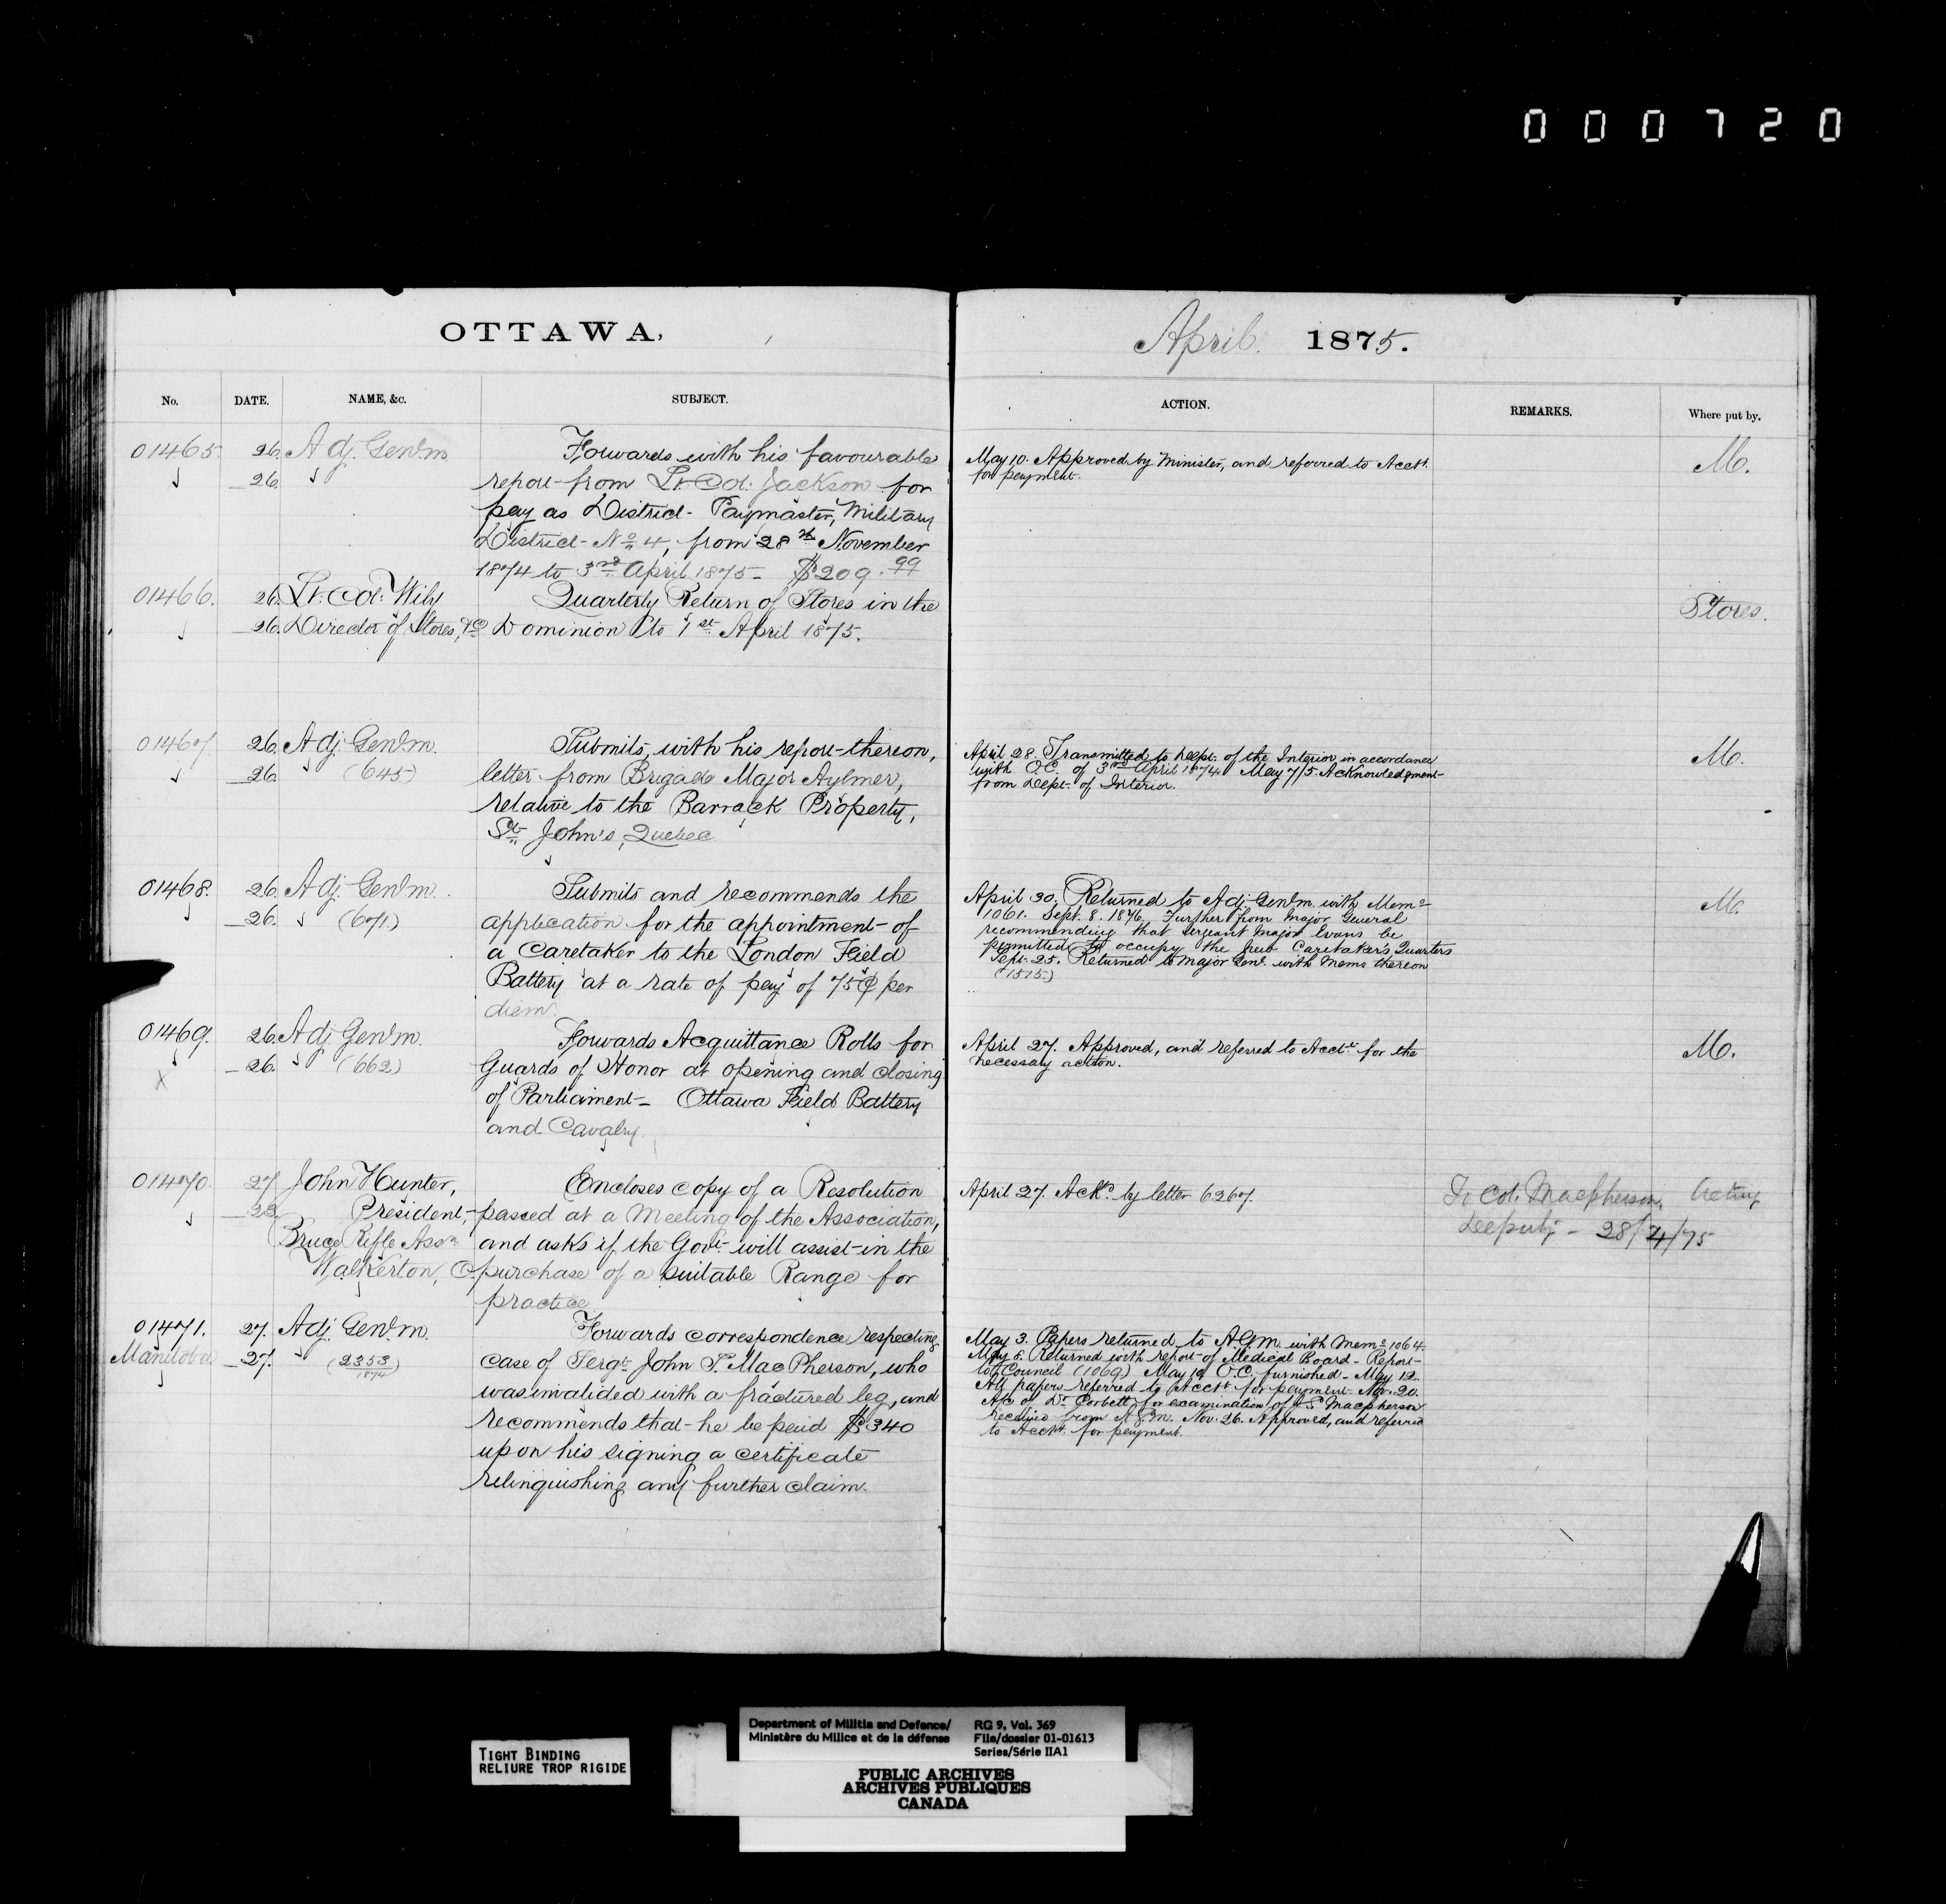 000720
OTTAWA,
April 1875.
No. DATE. NAME, &c. SUBJECT. ACTION. REMARKS. Where put by.
01465 26. Adj. Genl. m. Forwards with his favourable
26. report from Lt. Col. Jackson for
pay as District Paymaster, Military
District No 4, from 28th November
1874 to 3rd April 1875 - $209.99
May 10. Approved by Minister, and referred to Acctt.
for payment.
M.
01466. 26. Lt. Col. Wily Quarterly Return of Stores in the
26. Director of Stores, &c Dominion to 1st April 1875.
Stores.
01467 26. Adj. Genl. m. Submits, with his report thereon,
26. (645) letter from Brigade Major Aylmer,
relative to the Barrack Property,
St. John's, Quebec.
April 28. Transmitted to Dept. of the Interior in accordance
with O.C. of 3rd April 1874. May 7/5. Acknowledgment
from Dept. of Interior.
M.
01468. 26. Adj. Genl. m. Submits and recommends the
26. (671.) application for the appointment of
a Caretaker to the London Field
Battery at a rate of pay of 75¢ per
diem.
April 30. Returned to Adj. Genl. m. with Memo
1061. Sept. 8. 1876, Further from Major General
recommending that Sergeant Major Evans be
permitted to occupy the new Caretaker's Quarters
Sept. 25. Returned to Major Genl. with memo thereon
(1515.)
M.
01469. 26. Adj. Genl. m. Forwards Acquittance Rolls for
26. (662) Guards of Honor at opening and closing
X
of Parliament - Ottawa Field Battery
and Cavalry.
April 27. Approved, and referred to Acctt. for the
necessary action.
M.
01470. 27 John Hunter, Encloses copy of a Resolution
28 President, passed at a Meeting of the Association,
Bruce Rifle Assn and asks if the Govt. will assist in the
Walkerton, O. purchase of a suitable Range for
practice.
April 27. Ackd. by letter 6267.
Lt Col. Macpherson, Acting
Deputy - 28/4/75
01471. 27. Adj. Genl. m. Forwards correspondence respecting
Manitoba 27. (2353/1874) case of Sergt. John S. MacPherson, who
was invalided with a fractured leg, and
recommends that he be paid $340
upon his signing a certificate
relinquishing any further claim.
May 3. Papers returned to A.G.M. with Memo 1064.
May 8. Returned with report of Medical Board - Report
to Council (1069) May 19 O.C. furnished - May 12.
All papers referred to Acctt. for payment. Nov. 20.
A/c of Dr. Corbett for examination of J S Macpherson
received from A.G.M. Nov. 26. Approved, and referred
to Acctt. for payment.
TIGHT BINDING
RELIURE TROP RIGIDE
Department of Militia and Defence/
Ministère du Milice et de la défense
RG 9, Vol. 369
File/dossier 01-01613
Series/Série IIA1
PUBLIC ARCHIVES
ARCHIVES PUBLIQUES
CANADA